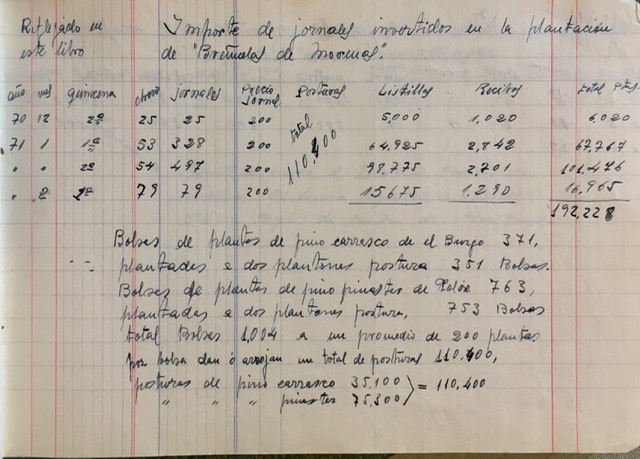 Reflejado en este libro
Importe de jornales invertidos en la plantación
de "Breñales de Morenas".
año mes quincena obreros jornales Precio Jornal Posturas Listillos Recibos total Ptas.
70 12 2ª 25 25 200 5,000 1,020 6,020
71 1 1ª 53 328 200 64,925 2,842 67,767
" " 2ª 54 497 200 98,775 2,701 101,476
" 2 1ª 79 79 200 15675 1.290 16,965
total 110,400
192,228
Bolsas de plantas de pino carrasco de el Burgo 371,
plantadas a dos plantones postura 351 Bolsas.
Bolsas de plantas de pino pinastes de 763,
plantadas a dos plantones postura, 753 Bolsas
total Bolsas 1,004 a un promedio de 200 plantas
por bolsa dan ó arrojan un total de posturas 110,400,
posturas de pino carrasco 35,100 } = 110,400
" " " pinastes 75,300